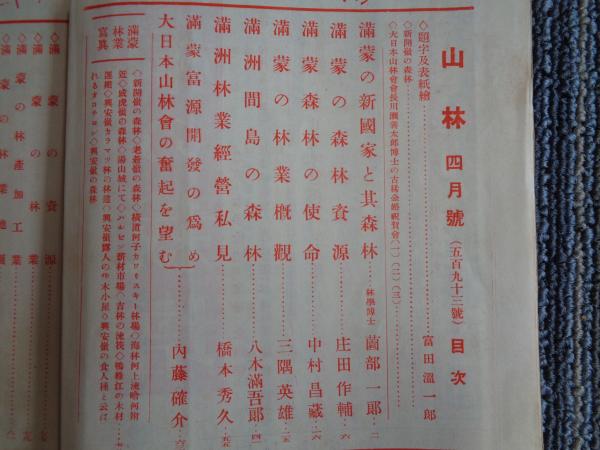 山林 四月號 (五百九十三號) 目次
◇題字及表紙繪 富田溫一郎
◇新開嶺の森林
◇大日本山林會會長川瀨善太郎博士の古稀金婚祝賀會(一)(二)(三)
滿蒙の新國家と其森林 林學博士 薗部一郞 二
滿蒙の森林資源 庄田作輔 六
滿蒙森林の使命 中村昌藏 一六
滿蒙の林業槪觀 三隅英雄 二五
滿洲間島の森林 八木滿吾郞 四一
滿洲林業經營私見 橋本秀久 五五
滿蒙富源開發の爲め
大日本山林會の奮起を望む 內藤確介
滿蒙
林業
寫眞
◇新開嶺の森林◇老爺嶺の森林◇橫道河子カワリスキー林場◇海林河上流噲河附
近◇威虎嶺の森林◇湯山城にて◇ハルビン新材市場◇吉林の流筏◇鴨綠江の木材
運搬◇興安嶺カラマツ林の林道◇興安嶺露人の伐木小屋◇興安嶺の食人種と云は
れるオロチヨン◇興安嶺の森林
◇滿蒙の資源